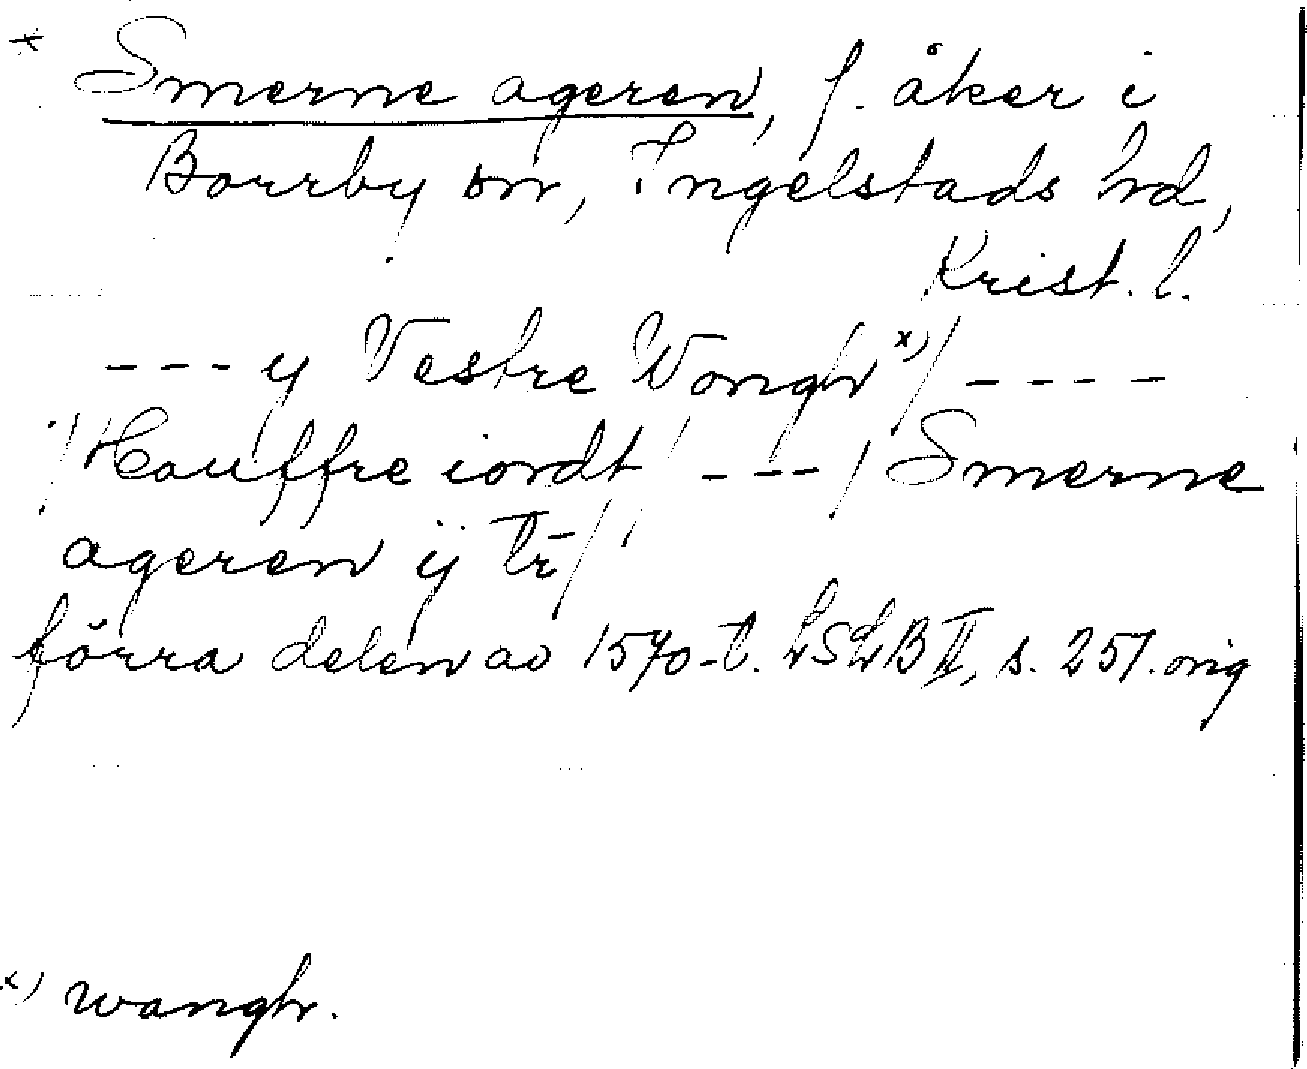 * Smerne ageren, f. åker i
Borrby sn, Ingelstads hd,
Krist. l.
--- y Vestre Wongh x) / ----
/ Houffre iordt / --- / Smerne
ageren ÿ tr̄ /
förra delen av 1570-t. LSLB II, s. 257. orig
x) wangh.